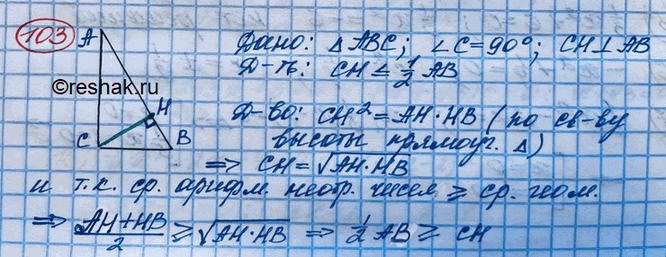 103
A
Дано: △ABC; ∠C=90°; CH⊥AB
Д-ть: CH ≤ 1/2 AB
©reshak.ru
H
Д-во: CH² = AH·HB (по св-ву
C B
высоты прямоуг. △)
⇒ CH = √(AH·HB)
и т.к. ср. арифм. неотр. чисел ≥ ср. геом.
⇒ (AH+HB)/2 ≥ √(AH·HB) ⇒ 1/2 AB ≥ CH